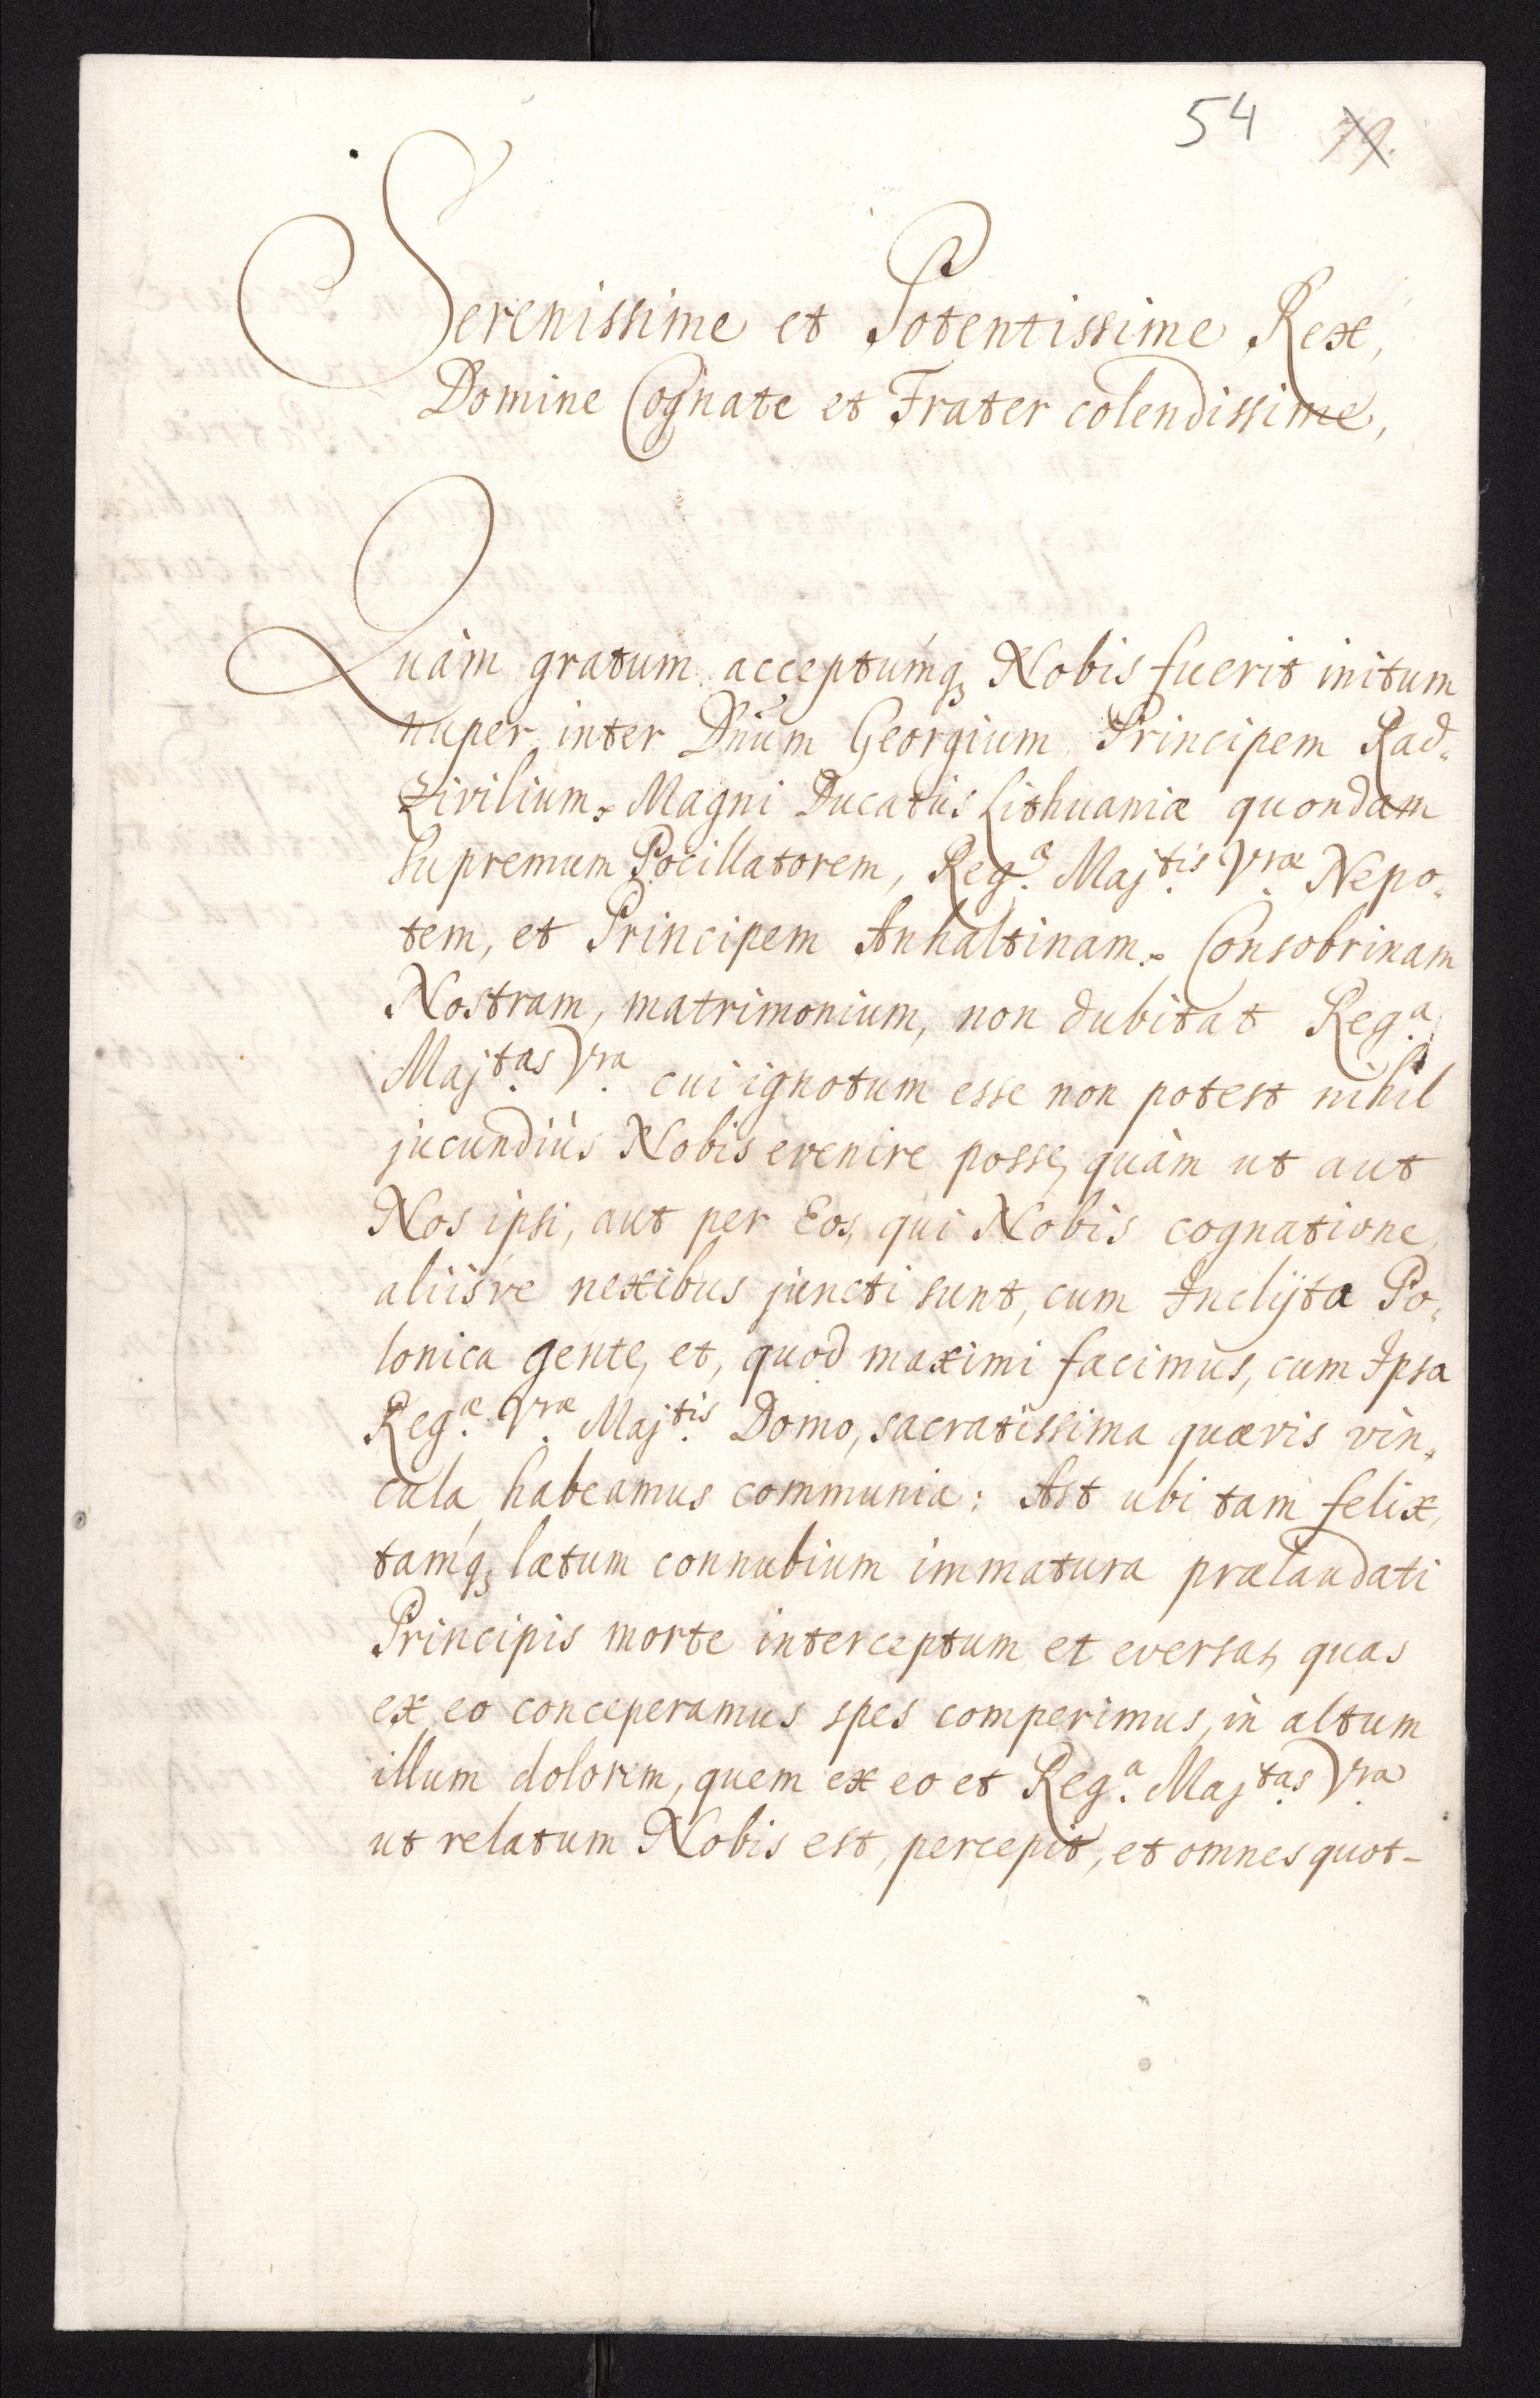 54 79.
Serenissime et Potentissime Rex,
Domine Cognate et Frater colendissime,
Quàm gratum acceptumq́; Nobis fuerit initum
nuper inter Dnūm Georgium Principem Rad-
zivilium, Magni Ducatûs Lithuaniæ quondam
supremum Pocillatorem, Reg.æ Majtis Vræ Nepo-
tem, et Principem Anhaltinam, Consobrinam
Nostram, matrimonium, non dubitat Reg.a
Majtas Vra cui ignotum esse non potest nihil
jucundiùs Nobis evenire posse, quàm ut aut
Nos ipsi, aut per Eos, qui Nobis cognatione,
aliisve nexibus juncti sunt, cum Inclÿta Po-
lonica gente, et, quod maximi facimus, cum Ipsa
Reg.æ Vræ Majtis Domo, sacratissima quævis vin-
cula habeamus communia: Ast ubi tam felix,
tamq́; lætum connubium immatura prælaudati
Principis morte interceptum et eversas, quas
ex eo conceperamus spes comperimus, in altum
illum dolorem, quem ex eo et Reg.a Majtas Vra
ut relatum Nobis est, percepit, et omnes quot-